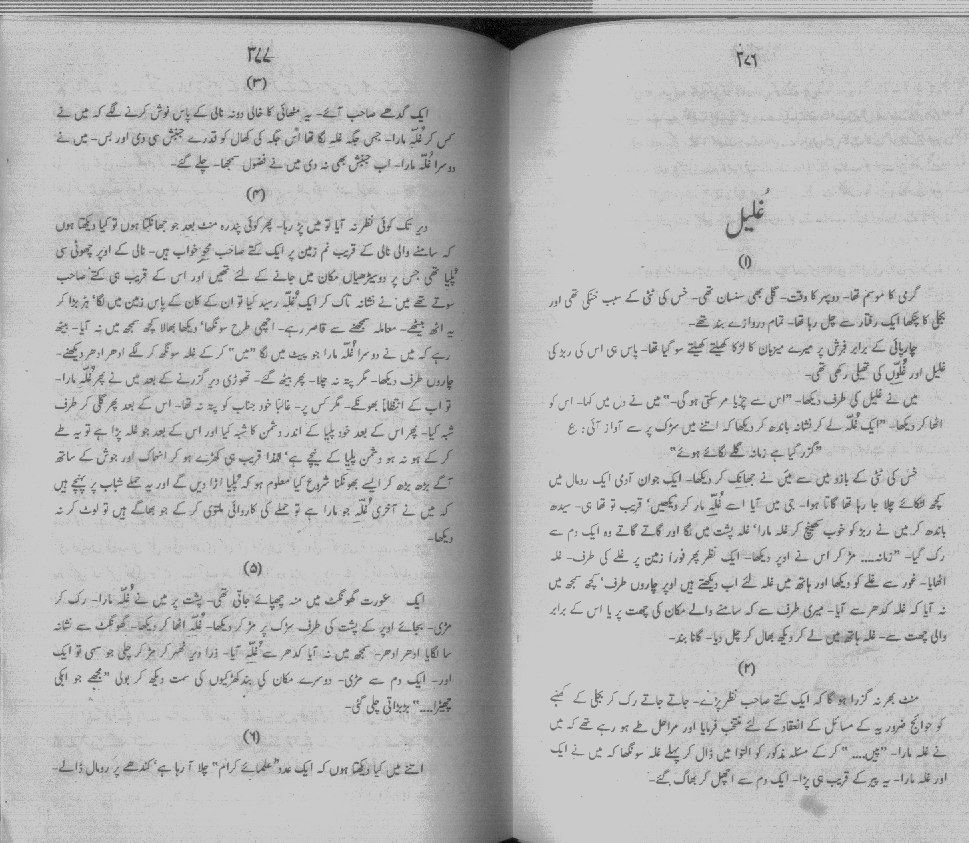 ۳۷۶
غلیل
(۱)
گرمی کا موسم تھا۔ دوپہر کا وقت۔ گلی بھی سنسان تھی۔ خس کی ٹٹی کے سبب خنکی تھی اور
بجلی کا پنکھا ایک رفتار سے چل رہا تھا۔ تمام دروازے بند تھے۔
چارپائی کے برابر فرش پر میرے میزبان کا لڑکا کھیلتے کھیلتے سو گیا تھا۔ پاس ہی اس کی ربڑ کی
غلیل اور غُلّوں کی تھیلی رکھی تھی۔
میں نے غلیل کی طرف دیکھا۔ ”اس سے چڑیا مر سکتی ہو گی۔“ میں نے دل میں کہا۔ اس کو
اٹھا کر دیکھا۔ ”ایک غُلّہ لے کر نشانہ باندھ کر دیکھا کہ اتنے میں سڑک پر سے آواز آئی: ع
”گزر گیا ہے زمانہ گلے لگائے ہوئے“
خس کی ٹٹی کے بازو میں سے میں نے جھانک کر دیکھا۔ ایک جوان آدمی ایک رومال میں
کچھ لٹکائے چلا جا رہا تھا گاتا ہوا۔ جی میں آیا اسے غُلّہ مار کر دیکھیں‘ قریب تو تھا ہی۔ سیدھ
باندھ کر میں نے ربڑ کو خوب کھینچ کر غلہ مارا‘ غلہ پشت میں لگا اور گاتے گاتے وہ ایک دم سے
رک گیا۔ ”زمانہ.... مڑ کر اس نے اوپر دیکھا۔ ایک نظر پھر فوراً زمین پر غلے کی طرف۔ غلہ
اٹھایا۔ غور سے غلے کو دیکھا اور ہاتھ میں غلہ لئے اب دیکھتے ہیں اوپر چاروں طرف‘ کچھ سمجھ میں
نہ آیا کہ غلہ کدھر سے آیا۔ میری طرف سے کہ سامنے والے مکان کی چھت پر یا اس کے برابر
والی چھت سے۔ غلہ ہاتھ میں لے کر دیکھ بھال کر چل دیا۔ گانا بند۔
(۲)
منٹ بھر نہ گزرا ہو گا کہ ایک کتے صاحب نظر پڑے۔ جاتے جاتے رک کر بجلی کے کھمبے
کو حوائج ضروریہ کے مسائل کے انعقاد کے لئے منتخب فرمایا اور مراحل طے ہو رہے تھے کہ میں
نے غلہ مارا۔ ”پیں....“ کر کے مسئلہ مذکور کو التوا میں ڈال کر پہلے غلہ سونگھا کہ میں نے ایک
اور غلہ مارا۔ یہ پیر کے قریب ہی پڑا۔ ایک دم سے اچھل کر بھاگ گئے۔
۳۷۷
(۳)
ایک گدھے صاحب آئے۔ یہ مٹھائی کا خالی دونہ نالی کے پاس نوش کرنے لگے کہ میں نے
کس کر غُلّہ مارا۔ جس جگہ غلہ لگا تھا اُس جگہ کی کھال کو قدرے جنبش سی دی اور بس۔ میں نے
دوسرا غُلّہ مارا۔ اب جنبش بھی نہ دی میں نے فضول سمجھا۔ چلے گئے۔
(۴)
دیر تک کوئی نظر نہ آیا تو میں پڑ رہا۔ پھر کوئی پندرہ منٹ بعد جو جھانکتا ہوں تو کیا دیکھتا ہوں
کہ سامنے والی نالی کے قریب نم زمین پر ایک کتے صاحب محو خواب ہیں۔ نالی کے اوپر چھوٹی سی
پلیا تھی جس پر دو سیڑھیاں مکان میں جانے کے لئے تھیں اور اس کے قریب ہی کتے صاحب
سوتے تھے میں نے نشانہ تاک کر ایک غُلّہ رسید کیا تو ان کے کان کے پاس زمین میں لگا‘ ہڑبڑا کر
یہ اٹھ بیٹھے۔ معاملہ سمجھنے سے قاصر رہے۔ اچھی طرح سونگھا‘ دیکھا بھالا کچھ سمجھ میں نہ آیا۔ بیٹھے
رہے کہ میں نے دوسرا غُلّہ مارا جو پیٹ میں لگا ”میں“ کر کے غلہ سونگھ کر لگے ادھر ادھر دیکھنے۔
چاروں طرف دیکھا۔ مگر پتہ نہ چلا۔ پھر بیٹھ گئے۔ تھوڑی دیر گزرنے کے بعد میں نے پھر غُلّہ مارا۔
تو اب کے انتقاماً بھونکے۔ مگر کس پر۔ غالباً خود جناب کو پتہ نہ تھا۔ اس کے بعد پھر گلی کر طرف
شبہ کیا۔ پھر اس کے بعد خود پلیا کے اندر دشمن کا شبہ کیا اور اس کے بعد جو غلہ پڑا ہے تو یہ طے
کر کے ہو نہ ہو دشمن پلیا کے نیچے ہے‘ لہٰذا قریب ہی کھڑے ہو کر انہماک اور جوش کے ساتھ
آگے بڑھ بڑھ کر ایسے بھونکنا شروع کیا معلوم ہو کہ پلیا اڑا دیں گے اور یہ حملے شباب پر پہنچے ہیں
کہ میں نے آخری غُلّہ جو مارا ہے تو حملے کی کارروائی ملتوی کر کے جو بھاگے ہیں تو لوٹ کر نہ
دیکھا۔
(۵)
ایک عورت گھونگٹ میں منہ چھپائے جاتی تھی۔ پشت پر میں نے غُلّہ مارا۔ رک کر
مڑی۔ بجائے اوپر کے پشت کی طرف سڑک پر مڑ کر دیکھا۔ غُلّہ اٹھا کر دیکھا۔ گھونگٹ سے نشانہ
سا لگایا ادھر ادھر۔ سمجھ میں نہ آیا کدھر سے غُلّہ آیا۔ ذرا دیر ٹھہر کر مڑ کر چلی جو سہی تو ایک
اور۔ ایک دم سے مڑی۔ دوسرے مکان کی بند کھڑکیوں کی سمت دیکھ کر بولی ”مجھے جو ابکی
چھیڑا....“ بڑبڑاتی چلی گئی۔
(۶)
اتنے میں کیا دیکھتا ہوں کہ ایک عدد ”علمائے کرام“ چلا آ رہا ہے‘ کندھے پر رومال ڈالے۔